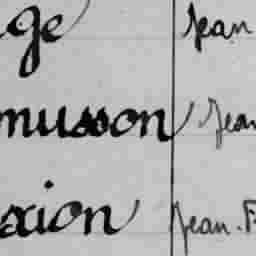 ge Jean
musson Jean
xion Jean-F